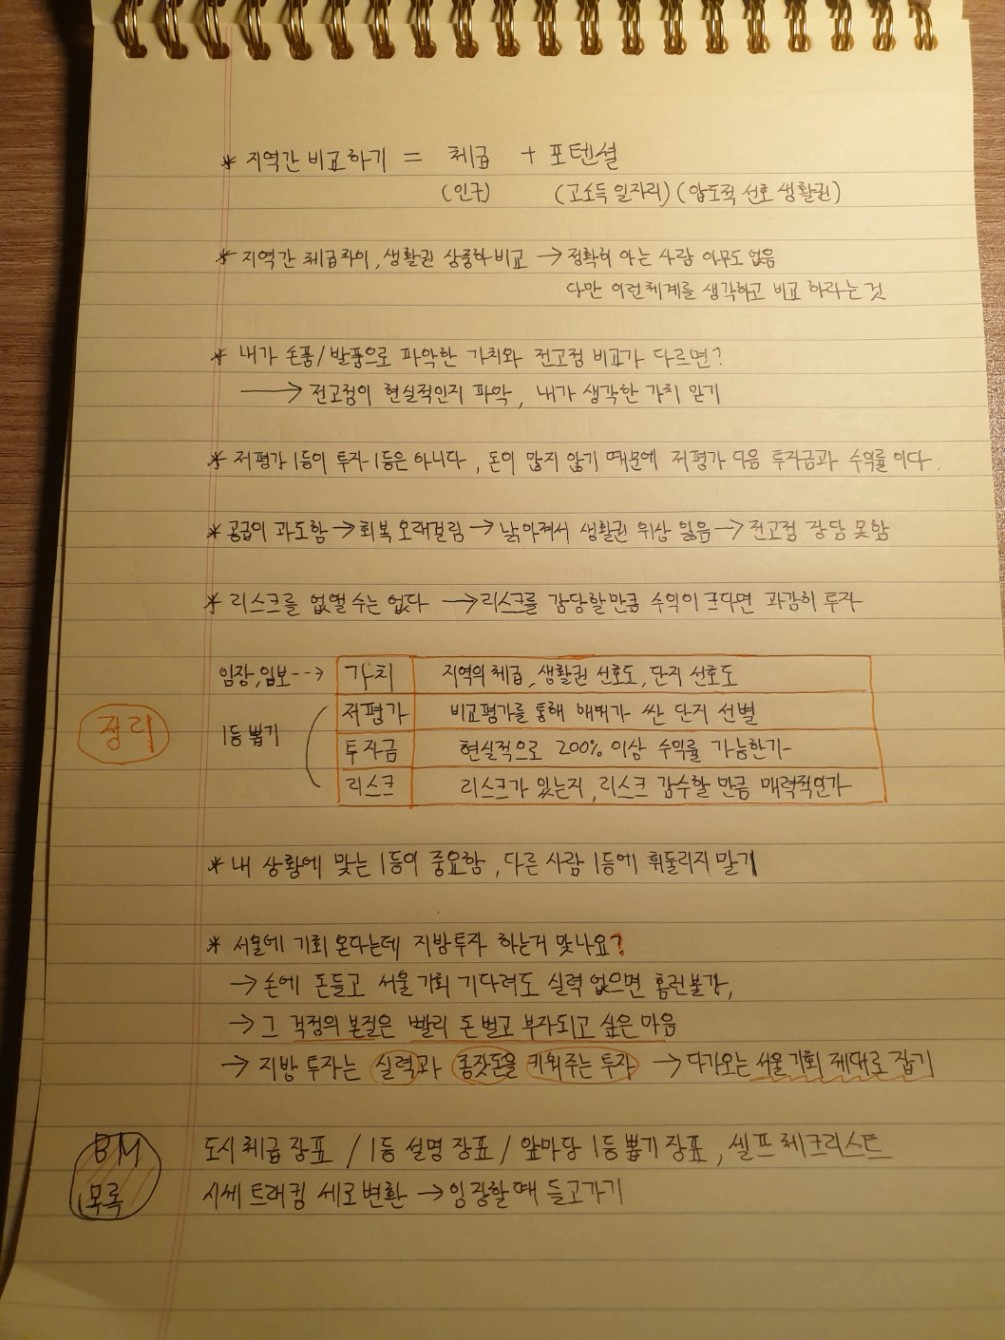 * 지역간 비교하기 = 체급 + 포텐셜
(인구) (고소득 일자리) (압도적 선호 생활권)
* 지역간 체급차이, 생활권 상중하 비교 → 정확히 아는 사람 아무도 없음
다만 이런체계를 생각하고 비교 하라는 것
* 내가 손품/발품으로 파악한 가치와 전고점 비교가 다르면?
→ 전고점이 현실적인지 파악, 내가 생각한 가치 믿기
* 저평가 1등이 투자 1등은 아니다, 돈이 많지 않기 때문에 저평가 다음 투자금과 수익률 이다.
* 공급이 과도함 → 회복 오래걸림 → 낡아져서 생활권 위상 잃음 → 전고점 장담 못함
* 리스크를 없앨 수는 없다 → 리스크를 감당할만큼 수익이 크다면 과감히 투자
임장,임보--> 가치 지역의 체급, 생활권 선호도, 단지 선호도
정리 1등 뽑기 저평가 비교평가를 통해 매매가 싼 단지 선별
투자금 현실적으로 200% 이상 수익률 가능한가
리스크 리스크가 있는지, 리스크 감수할 만큼 매력적인가
* 내 상황에 맞는 1등이 중요함, 다른 사람 1등에 휘둘리지 말기
* 서울에 기회 온다는데 지방투자 하는거 맞나요?
→ 손에 돈들고 서울 기회 기다려도 실력 없으면 홈런불가,
→ 그 걱정의 본질은 빨리 돈 벌고 부자되고 싶은 마음
→ 지방 투자는 실력과 종잣돈을 키워주는 투자 → 다가오는 서울 기회 제대로 잡기
BM 목록 도시 체급 장표 / 1등 설명 장표 / 앞마당 1등 뽑기 장표, 셀프 체크리스트
시세 트래킹 세로변환 → 임장할때 들고가기